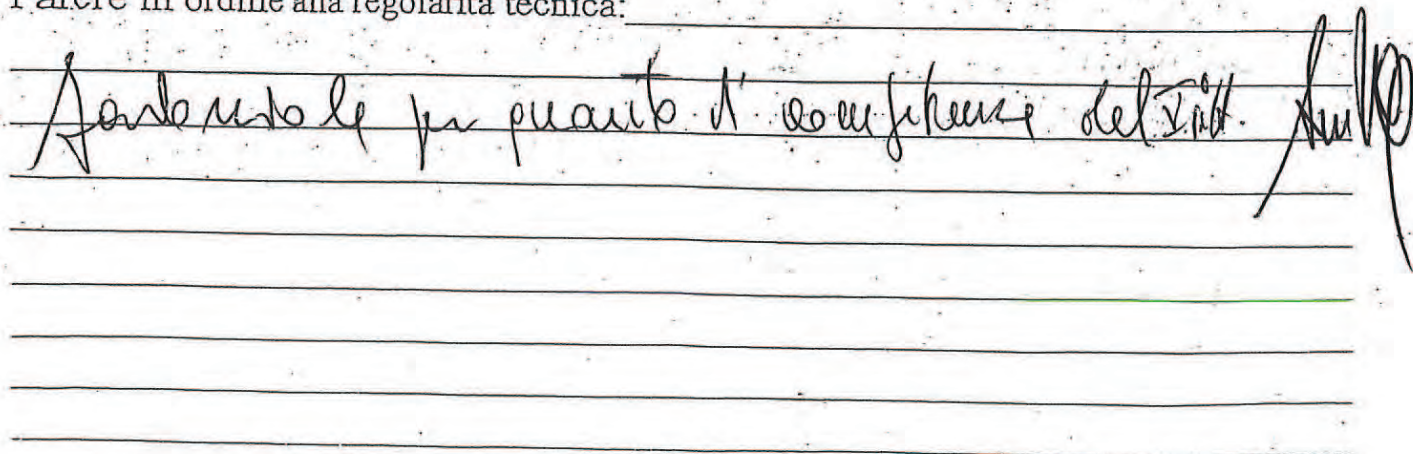 Parere in ordine alla regolarità tecnica:
per quanto di competenza del